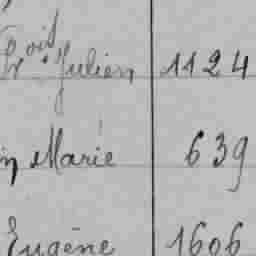 Julien 1124
Marie 639
Eugène 1606